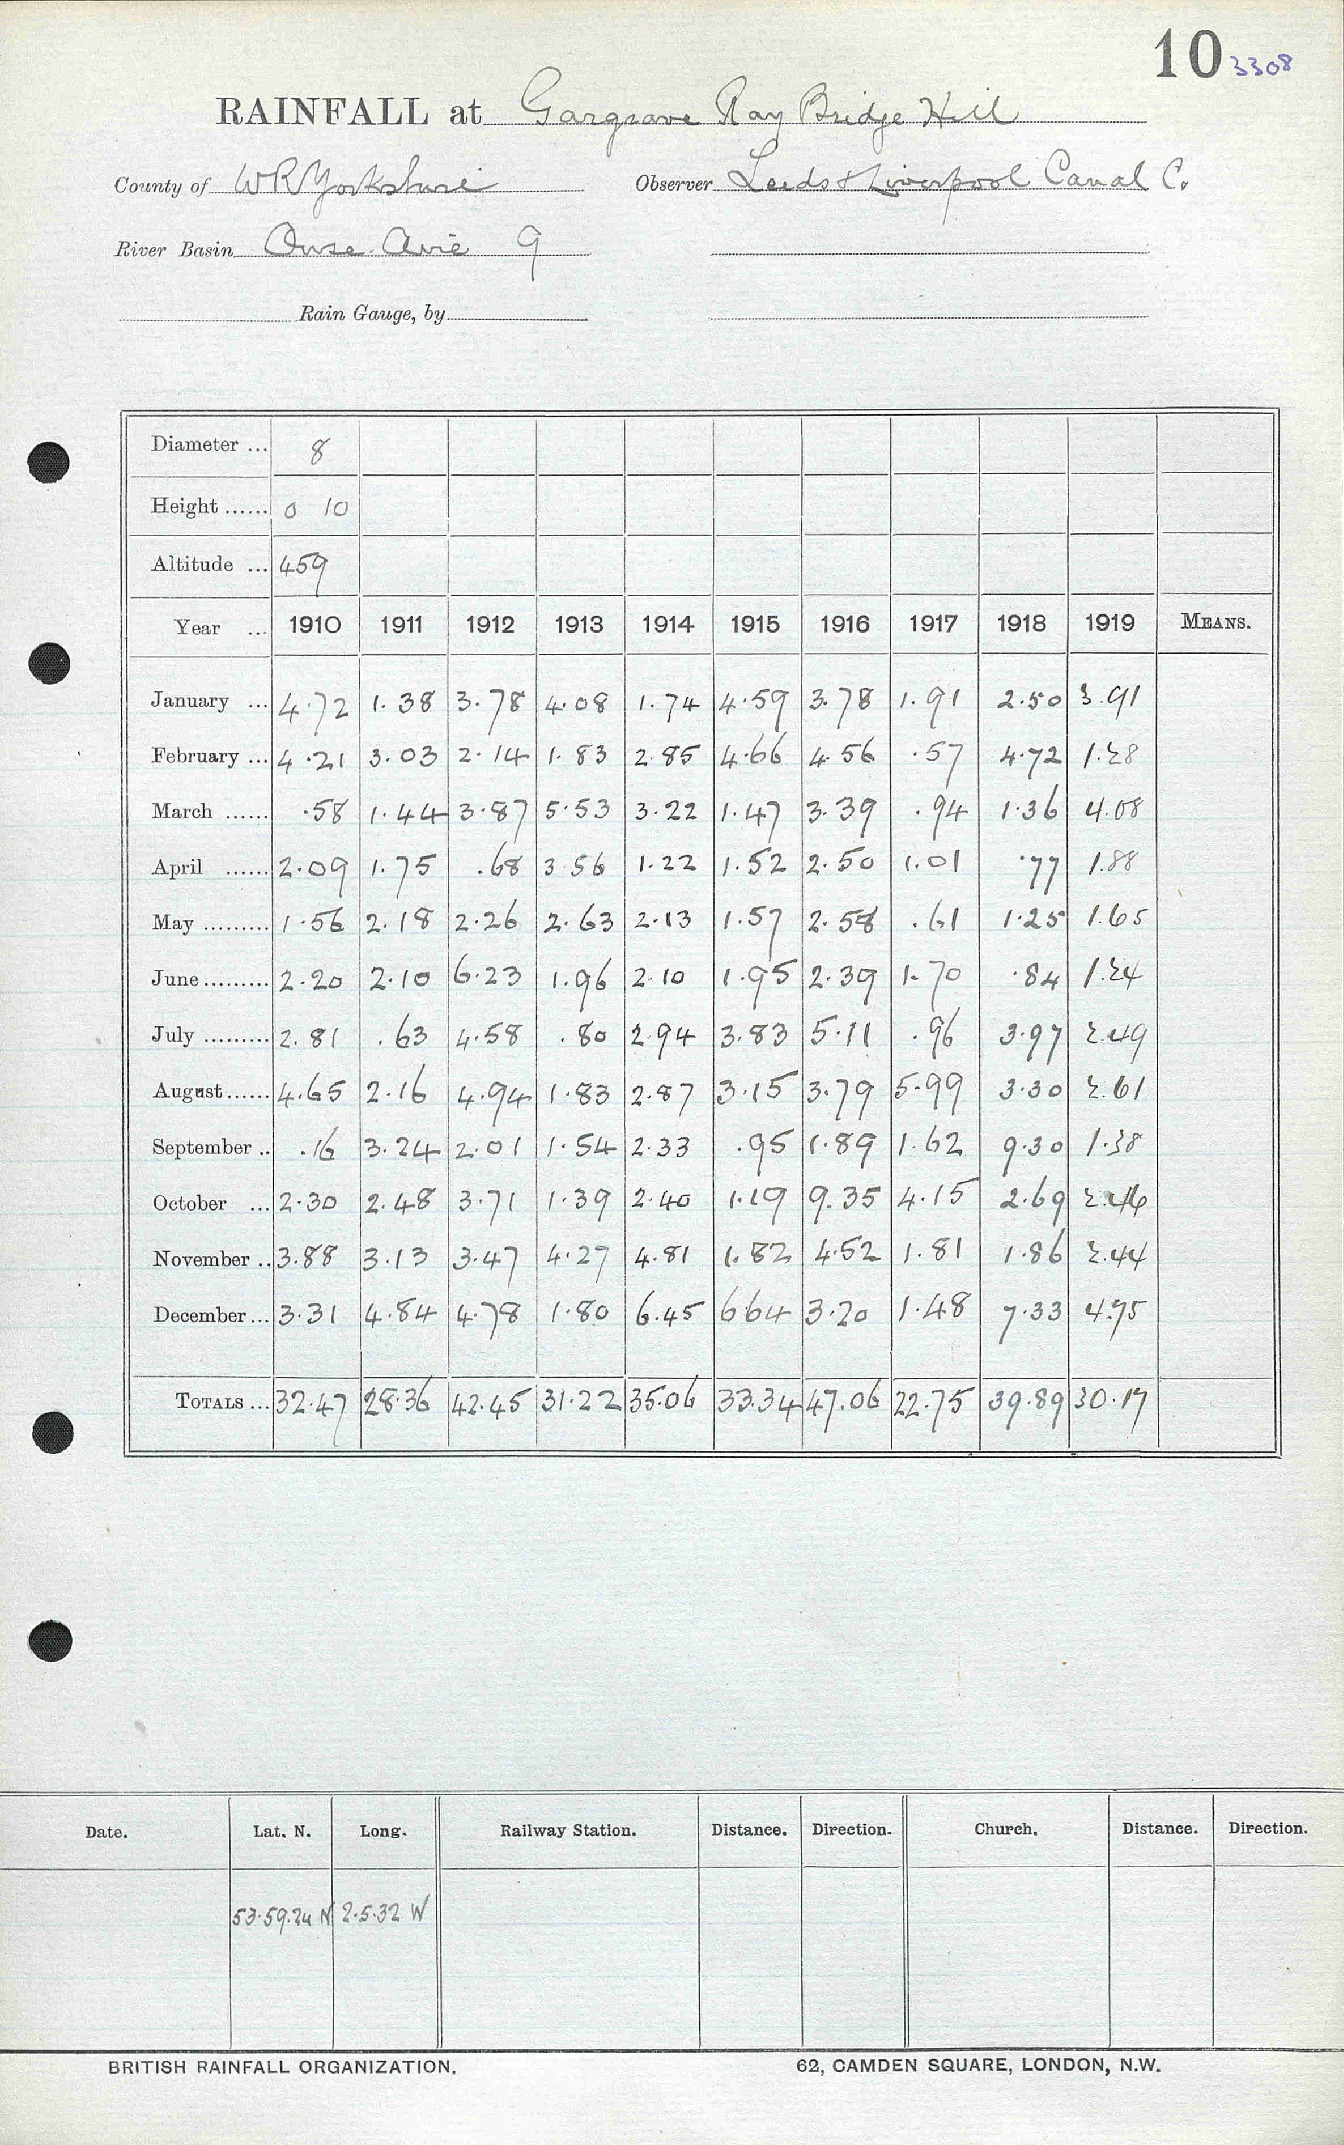 10 3308
RAINFALL at Gargrave Ray Bridge Hill
County of WR Yorkshire Observer Leeds & Liverpool Canal Co.
River Basin Ouse. Aire 9
Rain Gauge, by
Diameter ... 8
Height ...... 0 10
Altitude ... 459
Year ... 1910 1911 1912 1913 1914 1915 1916 1917 1918 1919 MEANS.
January ... 4.72 1.38 3.78 4.08 1.74 4.59 3.78 1.91 2.50 3.91
February ... 4.21 3.03 2.14 1.83 2.85 4.66 4.56 .57 4.72 1.28
March ...... .58 1.44 3.87 5.53 3.22 1.47 3.39 .94 1.36 4.08
April ...... 2.09 1.75 .68 3.56 1.22 1.52 2.50 1.01 .77 1.88
May ......... 1.56 2.18 2.26 2.63 2.13 1.57 2.58 .61 1.25 1.65
June ......... 2.20 2.10 6.23 1.96 2.10 1.95 2.39 1.70 .84 1.24
July ......... 2.81 .63 4.58 .80 2.94 3.83 5.11 .96 3.97 2.49
August ...... 4.65 2.16 4.94 1.83 2.87 3.15 3.79 5.99 3.30 2.61
September .. .16 3.24 2.01 1.54 2.33 .95 1.89 1.62 9.30 1.38
October ... 2.30 2.48 3.71 1.39 2.40 1.19 9.35 4.15 2.69 2.46
November .. 3.88 3.13 3.47 4.27 4.81 1.82 4.52 1.81 1.86 2.44
December ... 3.31 4.84 4.78 1.80 6.45 6 64 3.20 1.48 7.33 4.75
TOTALS ... 32.47 28.36 42.45 31.22 35.06 33.34 47.06 22.75 39.89 30.17
Date. Lat. N. Long. Railway Station. Distance. Direction. Church. Distance. Direction.
53.59.24 N 2.5.32 W
BRITISH RAINFALL ORGANIZATION. 62, CAMDEN SQUARE, LONDON, N.W.